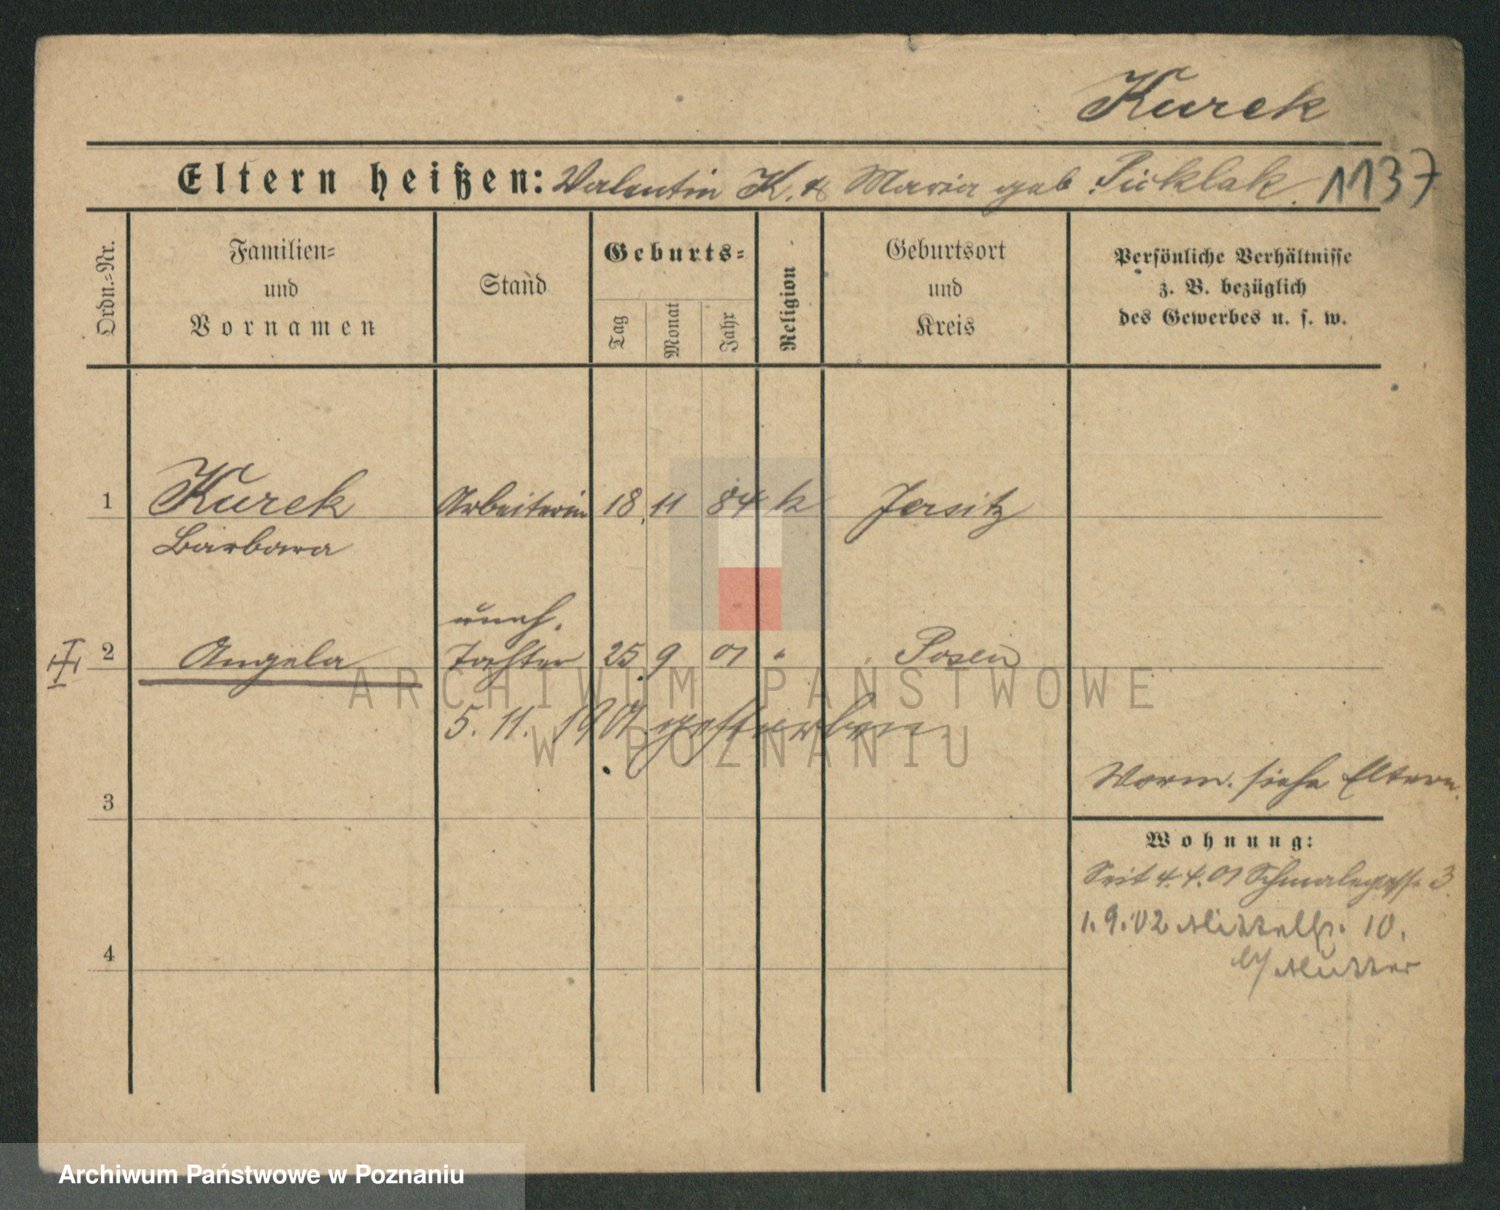 Kurek
Eltern heißen: Valentin K. & Maria geb. 1137
Ordn.-Nr.
Familien-
und
Vornamen
Stand
Geburts-
Tag
Monat
Jahr
Religion
Geburtsort
und
Kreis
Persönliche Verhältnisse
z. B. bezüglich
des Gewerbes u. s. w.
1 Kurek Arbeiterin 18. 11 84 k Jersitz
Barbara
uneh.
2 Angela Tochter 25. 9 01 " Posen
5. 11. 1901 gestorben.
3
Vorm. siehe Eltern.
Wohnung:
Seit 4. 4. 01 Schmalegasse 3.
1. 9. 02 Mittelstr. 10.
4
b/ Mutter
ARCHIWUM PAŃSTWOWE
W POZNANIU
Archiwum Państwowe w Poznaniu